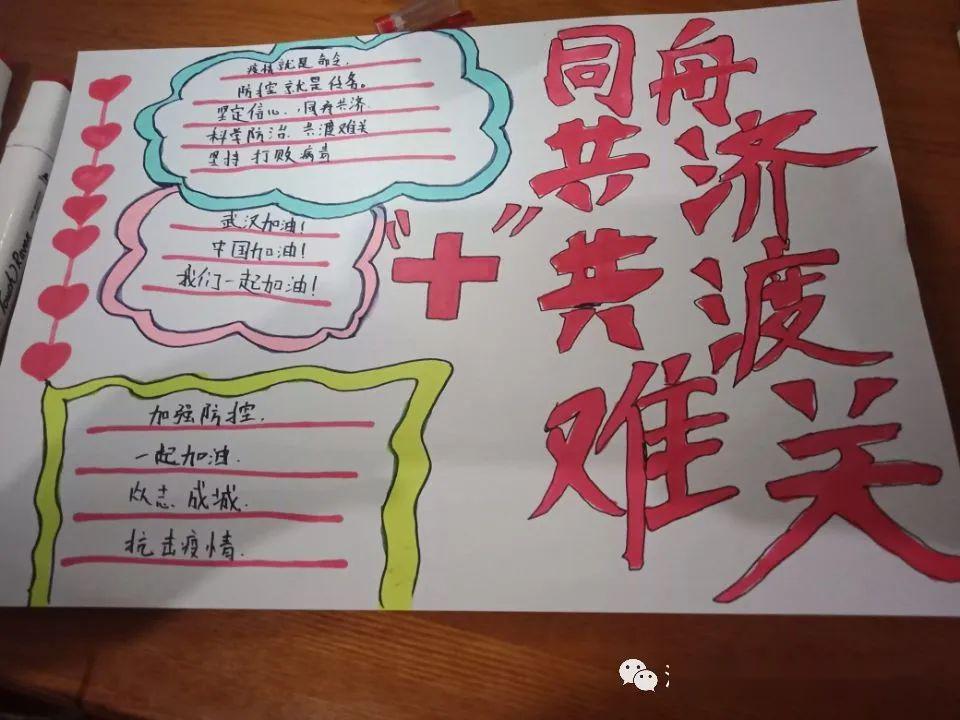 疫情就是命令,
防控就是任务。
坚定信心,同舟共济.
科学防治.共渡难关
坚持 打败病毒
武汉加油!
中国加油!
我们一起加油!
加强防控.
一起加油.
众志成城.
抗击疫情.
同舟
共济
共渡
难关